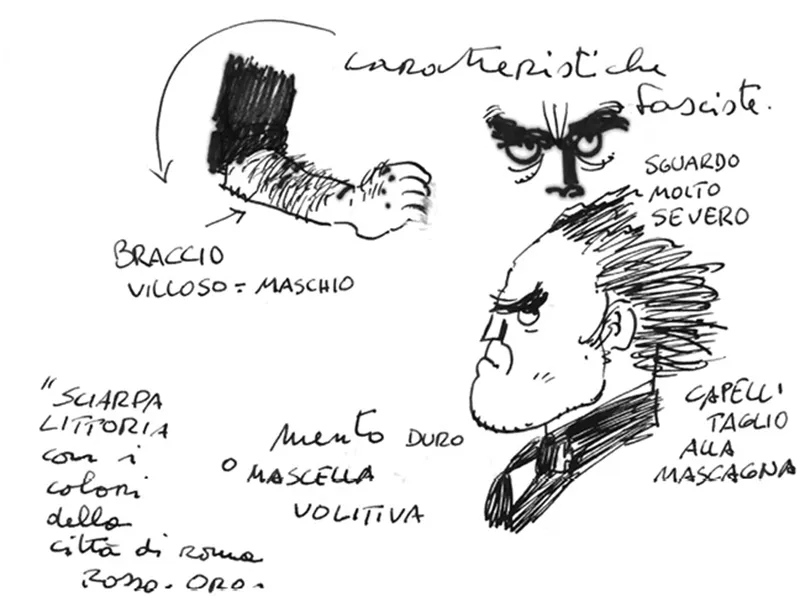 caratteristiche
fasciste.
SGUARDO
MOLTO
SEVERO
BRACCIO
VILLOSO = MASCHIO
"SCIARPA
LITTORIA
con i
colori
della
città di Roma
ROSSO - ORO -
Mento DURO
O MASCELLA
VOLITIVA
CAPELLI
TAGLIO
ALLA
MASCAGNA